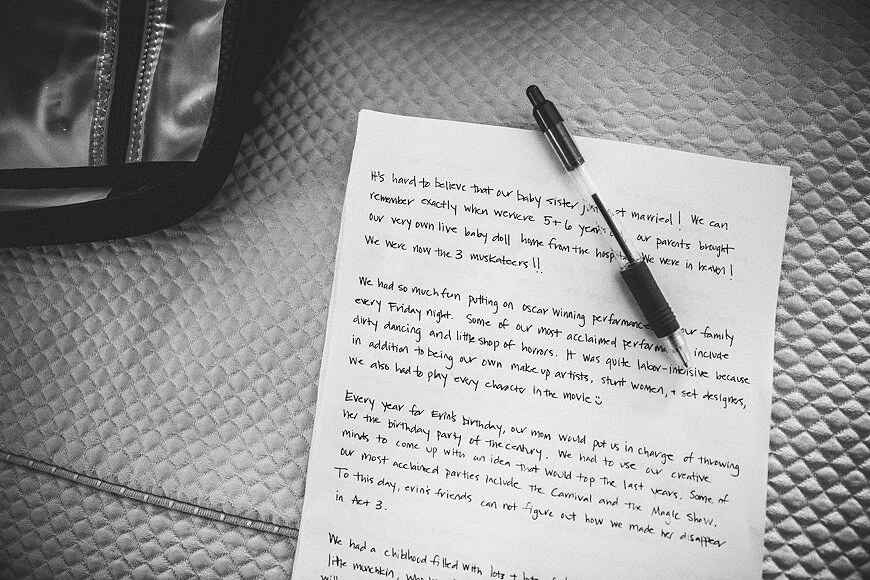 It's hard to believe that our baby sister just got married! We can
remember exactly when we were 5+6 years our parents brought
our very own live baby doll home from the hospital. We were in heaven!
We were now the 3 muskateers!!
We had so much fun putting on oscar winning performances our family
every Friday night. Some of our most acclaimed performances include
dirty dancing and little shop of horrors. It was quite labor-intensive because
in addition to being our own make up artists, stunt women, + set designers,
we also had to play every character in the movie
Every year for Erin's birthday, our mom would put us in charge of throwing
her the birthday party of the century. We had to use our creative
minds to come up with an idea that would top the last years. Some of
our most acclaimed parties include the Carnival and the Magic Show.
To this day, erin's friends can not figure out how we made her disappear
in Act 3.
We had a childhood filled with lots + lots of
little munchkin,